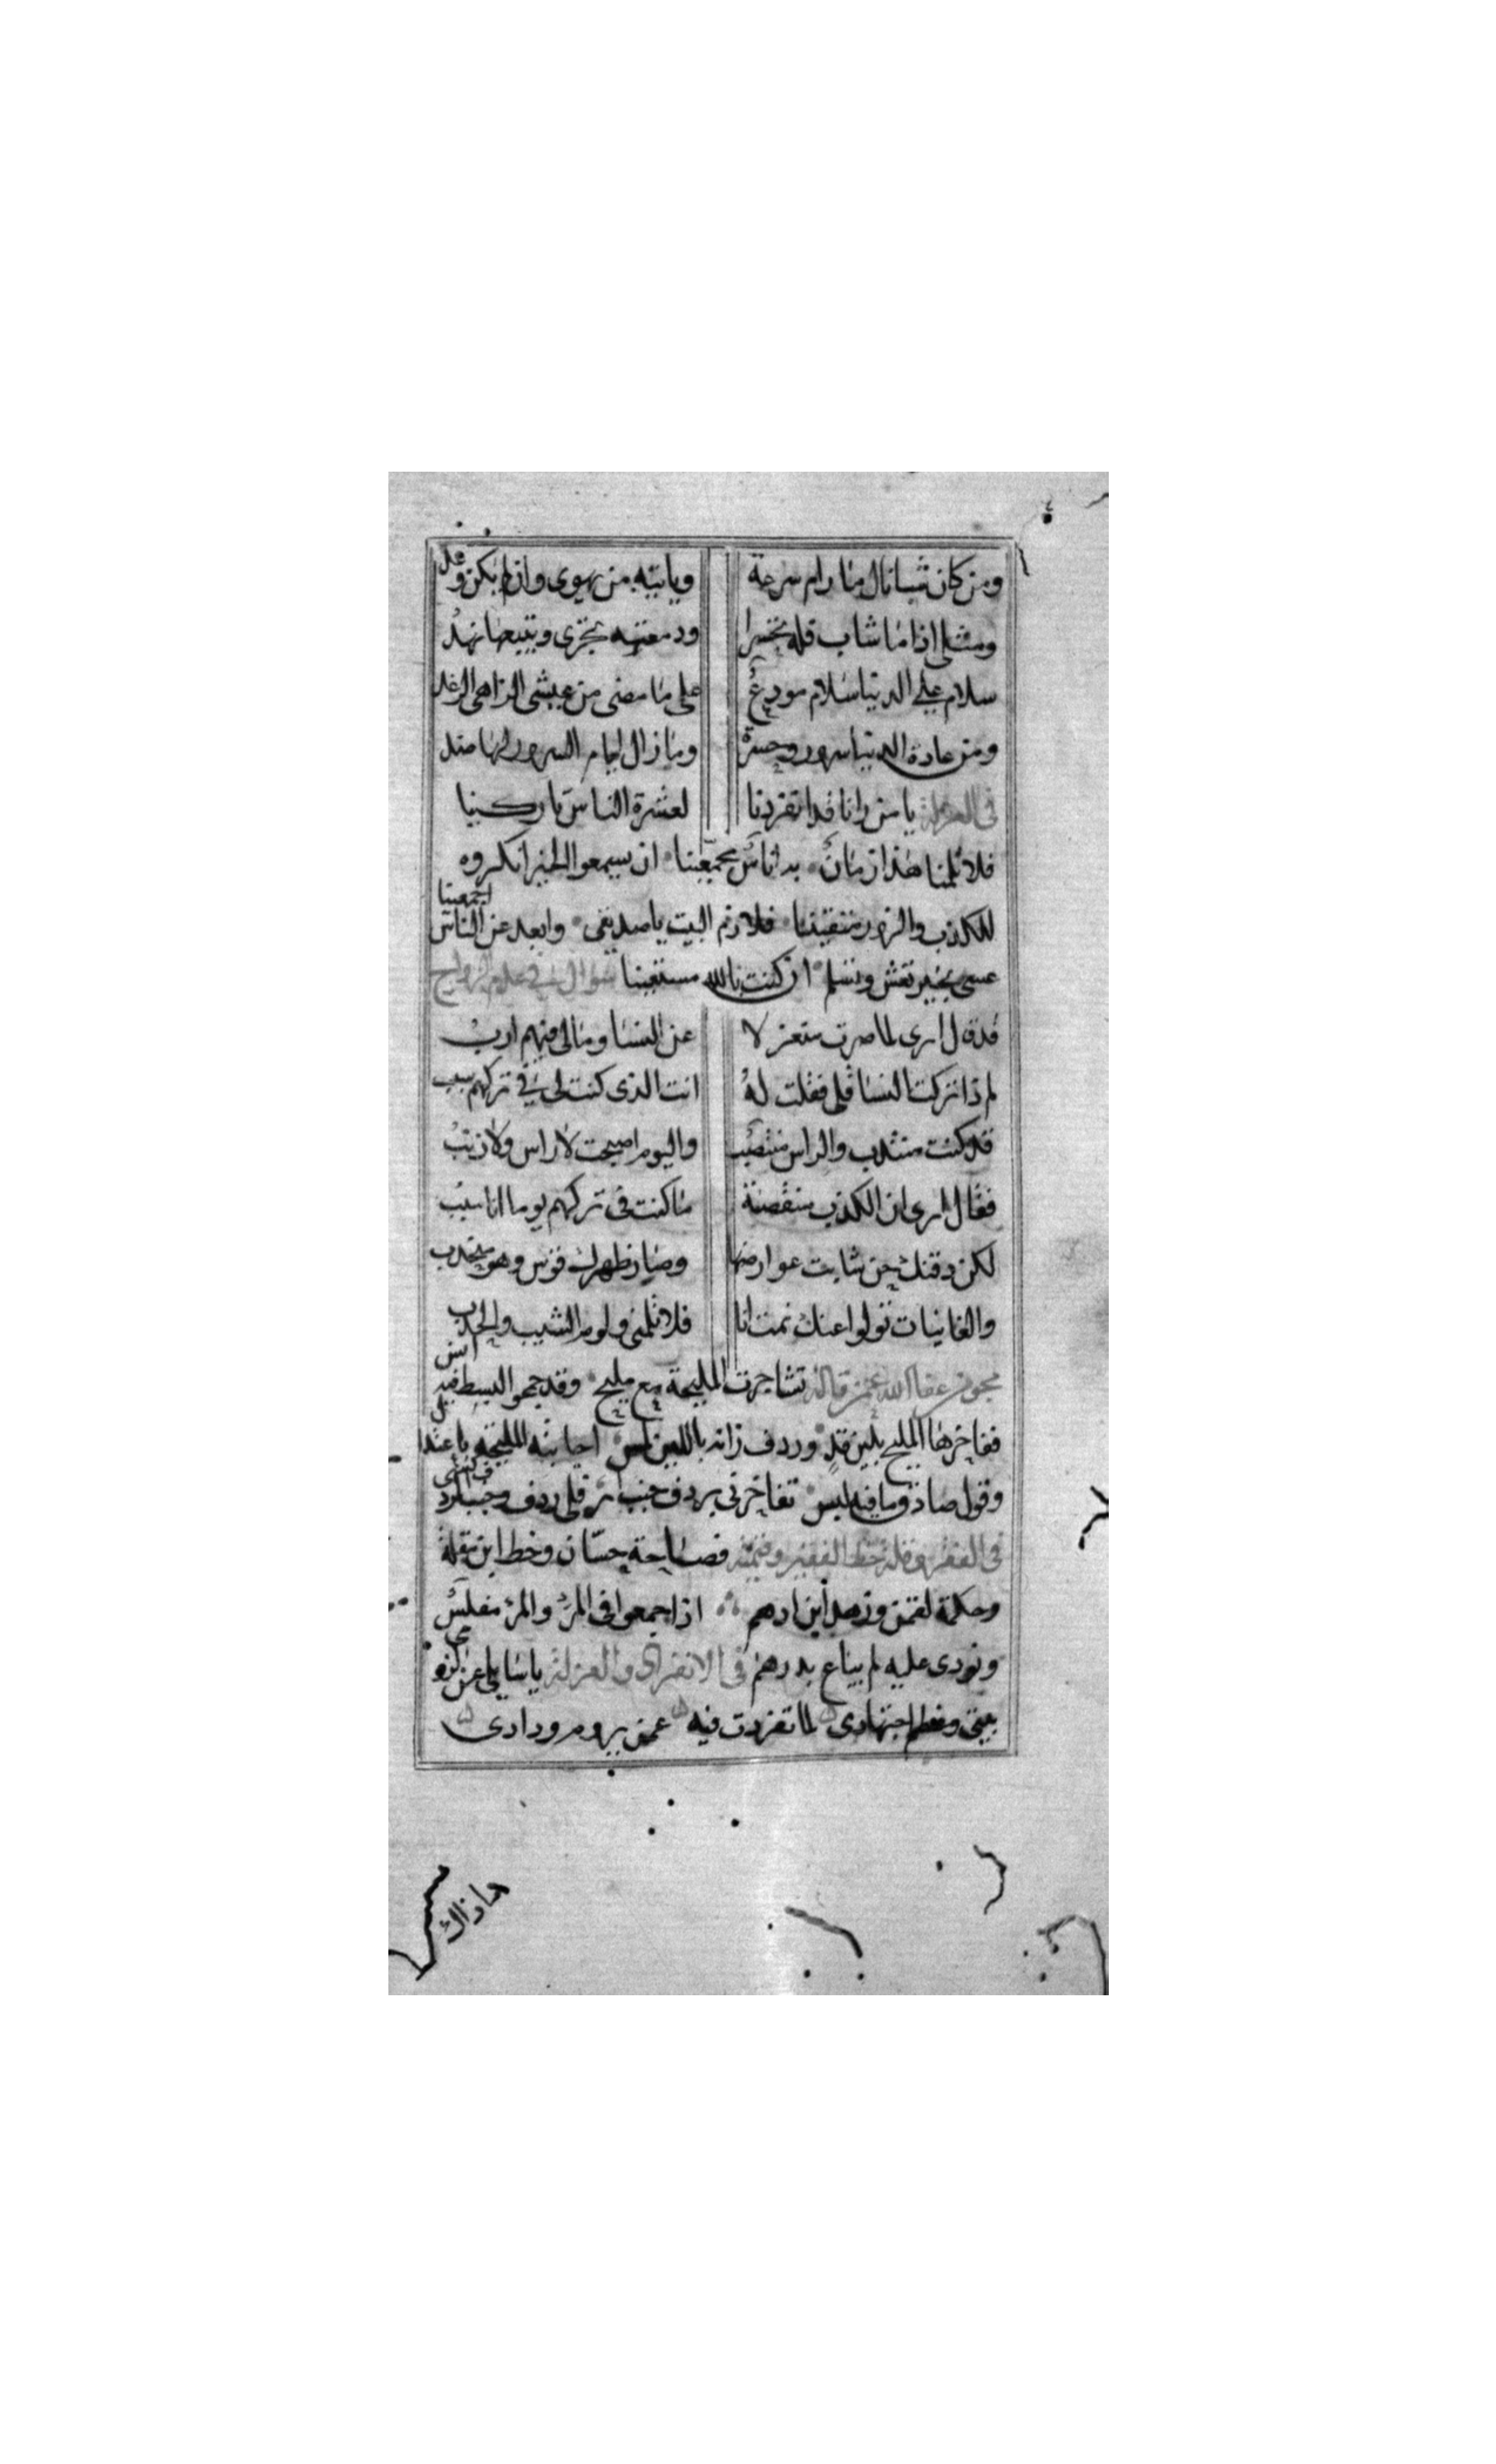 ومن كان شبا نال ما رام سرعة وياتيه من يهوى وان لم يكن وعد
ومثلى اذا ما شاب قله تخسرا ودمعته تجرى ويتبعها نهد
سلام على الدنيا سلام مودع على ما مضى من عيشى الزاهى الرغد
ومن عادة الدنيا سرور وحسرة وما زال ايام السرور لها ضد
فى العزلة يا من رانا قد انفردنا لعشرة الناس تاركينا
فلا تلمنا هذا زمان بد اناس مجمعينا ان يسمعوا الخير انكروه
للكذب والزور متقينا فلازم البيت يا صديقى وابعد عن الناس اجمعينا
عسى بخير تعش وتسلم ان كنت بالله مستعينا سوال فى عدم الزواج
قد قال ايرى لما صرت منعزلا عن النسا وما لى فيهم ارب
لم ذا تركت النسا قلى فقلت له انت الذى كنت لى فى تركهم سبب
قد كنت منتدب والراس منتصب واليوم اصبحت لا راس ولا ذنب
فقال ايرى ان الكذب منقصة ما كنت فى تركهم يوما انا سبب
لكن دقنك حين شابت عوارضها وصار ظهرك قوس وهو منحدب
والغانيات تولوا عنك نمت انا فلا تلمنى ولوم الشيب والحدب
مجون عفا الله عمن قاله تشاجرت المليحة مع مليح وقد جمعوا البسط فيه انس
ففاخرها المليح بلين قد وردف زانه باللين لمس اجابته المليحة باعتدال
وقول صادق وما فيه لبس تفاخرنى بردف جنب
فى الفقر وقلة حظ الفقير وقيمته فصاحة حسان وخط ابن مقلة
وحكمة لقمن وزهد ابن ادهم اذا جمعوا فى المرء والمرء مفلس
ونودى عليه لم يباع بدرهم فى الانفراد والعزلة يا سايلى عن لزومى
بيتى وعظم اجتهادى لما تفردت فيه عمن يروم ودادى
ما ذاك